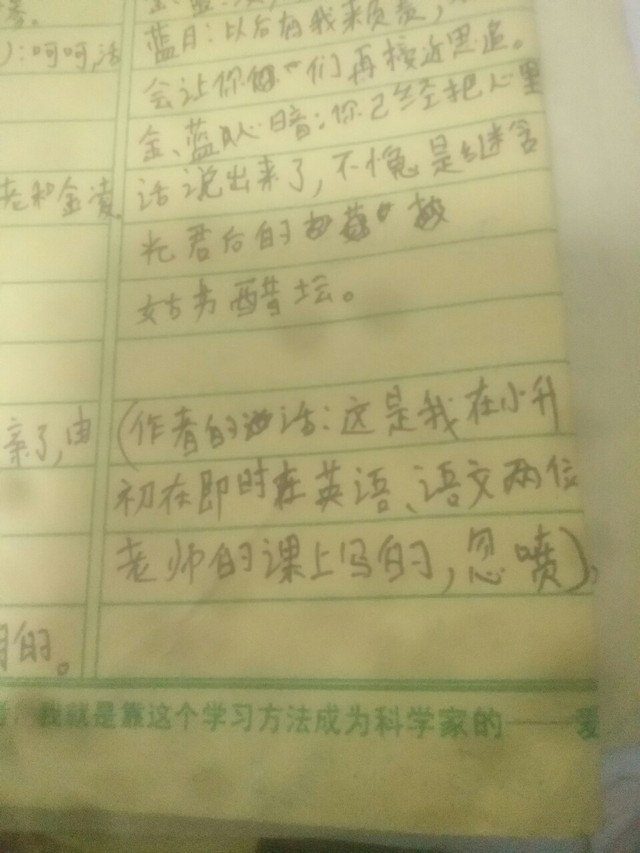 ）：呵呵，话
老和金凌
亲了，由
的。
蓝月：以后有我来负责，
会让你们再接近思追。
金、蓝景心暗：你已经把心里
话说出来了，不愧是继含
光君后的
姑苏醋坛。
（作者的话：这是我在小升
初在即时在英语、语文两位
老师的课上写的，忽喷）
我就是靠这个学习方法成为科学家的——爱